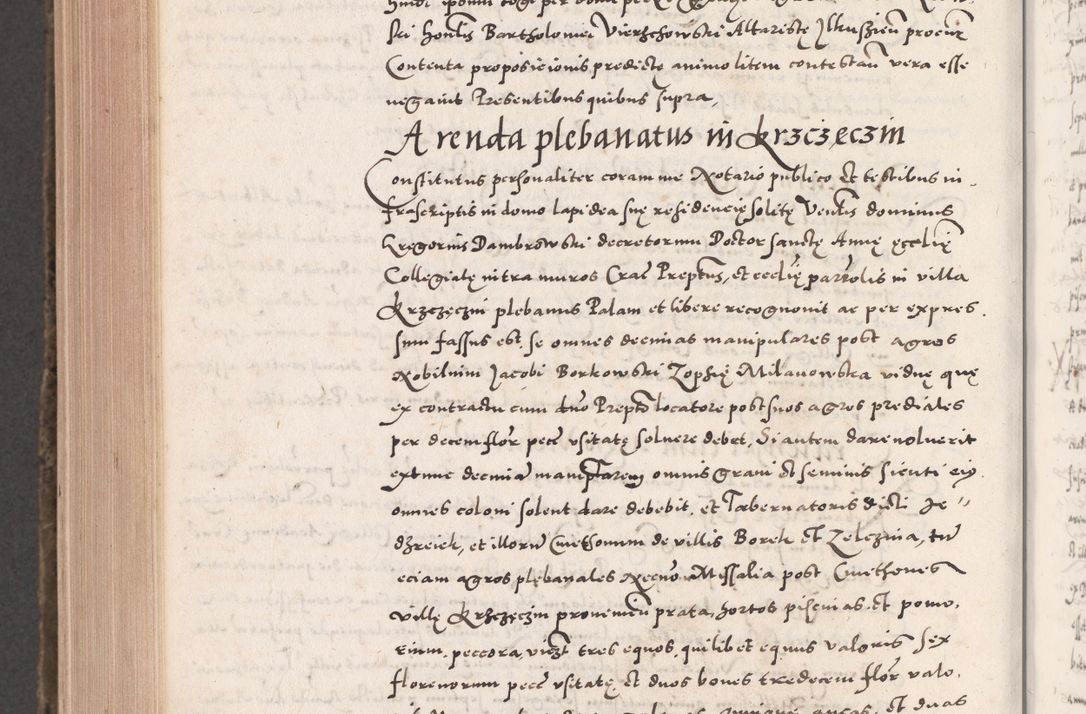 ski honlis Bartholomei Vierzchowski Altariste Jlkuszien procur
Contenta proposicionis predictę animo litem contestan vera esse
negauit Presentibus quibus supra,
Arenda plebanatus in Krzcżęczin
Constitutus personaliter coram me Notario publico et testibus in-
frascriptis in domo lapidea suę residencię solitę Venlis dominus
Gregorius Dambrowski decretorum Doctor sanctę Annę ęcclię
Collegiatę intra muros Crac Preptus, et ecclię parrolis in villa
Krzczęczin plebanus Palam et libere recognouit ac per expres
sum fassus est, se omnes decimas manipulares post agros
Nobilium Jacobi Borkowski Zophię Milanowska viduę quę
ex contractu cum dno Prepto locatore post suos agros prediales
per decem flor pecc vsitatę soluere debet, Si autem dare noluerit
extunc decimā maniplarem omnis grani et seminis sicuti eiꝰ
omnes coloni solent dare debebit, et Tabernatoris dicti Je//
dzreiek, et illorum Cmethonum de villis Borek et Zelczina, tum
eciam agros plebanales Necnō Missalia post Cmethones
villę Krzczęczin prouenien prata, hortos piscinas et pomo,
rium, peccora, vidzt tres equos, quilibet equus valoris sex
florenorum pecc vsitatę et duos boues tredecem flor valo,